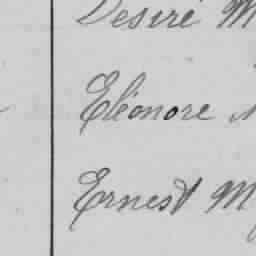 Désiré M
Eléonore
Ernest M